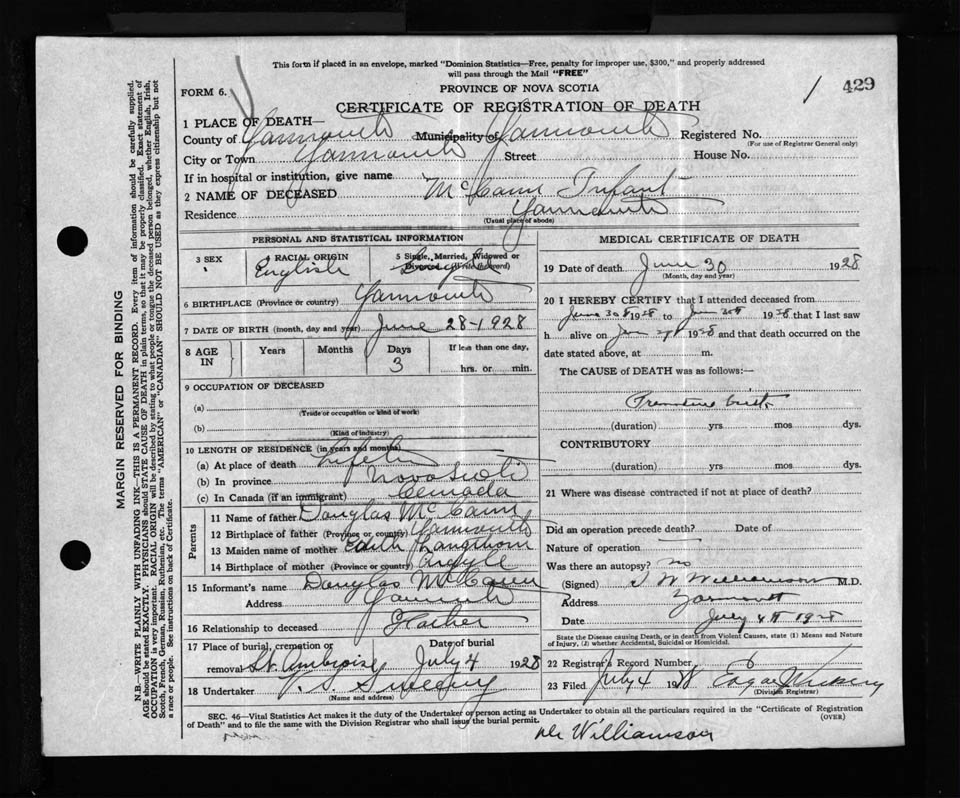 This form if placed in an envelope, marked "Dominion Statistics—Free, penalty for improper use, $300," and properly addressed
will pass through the Mail "FREE"
FORM 6.
PROVINCE OF NOVA SCOTIA
1 429
CERTIFICATE OF REGISTRATION OF DEATH
1 PLACE OF DEATH—
County of Yarmouth Municipality of Yarmouth Registered No.
(For use of Registrar General only)
City or Town Yarmouth Street House No.
If in hospital or institution, give name
2 NAME OF DECEASED McCann Infant
Residence Yarmouth
(Usual place of abode)
PERSONAL AND STATISTICAL INFORMATION
3 SEX
4 RACIAL ORIGIN
English
5 Single, Married, Widowed or
Divorced (Write the word)
6 BIRTHPLACE (Province or country) Yarmouth
7 DATE OF BIRTH (month, day and year) June 28-1928
8 AGE IN
Years Months Days If less than one day,
3 hrs. or min.
9 OCCUPATION OF DECEASED
(a)
(Trade or occupation or kind of work)
(b)
(Kind of industry)
10 LENGTH OF RESIDENCE (in years and months)
(a) At place of death Lifetime
(b) In province Nova Scotia
(c) In Canada (if an immigrant) Canada
Parents
11 Name of father Douglas McCann
12 Birthplace of father (Province or country) Yarmouth
13 Maiden name of mother Edith
14 Birthplace of mother (Province or country) Argyle
15 Informant's name Douglas McCann
Address Yarmouth
16 Relationship to deceased Father
17 Place of burial, cremation or Date of burial
removal St. Ambroise July 4 1928
18 Undertaker V. S. Sweeny
(Name and address)
MEDICAL CERTIFICATE OF DEATH
19 Date of death June 30 1928
(Month, day and year)
20 I HEREBY CERTIFY that I attended deceased from
June 30 1928 to June 30 1928 that I last saw
h alive on June 1928 and that death occurred on the
date stated above, at m.
The CAUSE of DEATH was as follows:—
Premature birth
(duration) yrs mos dys.
CONTRIBUTORY
(duration) yrs mos dys.
21 Where was disease contracted if not at place of death?
Did an operation precede death? Date of
Nature of operation
Was there an autopsy? no
(Signed) Williamson M.D.
Address Yarmouth
Date July 4th 1928
State the Disease causing Death, or in death from Violent Causes, state (1) Means and Nature
of Injury, (2) whether Accidental, Suicidal or Homicidal.
22 Registrar's Record Number 6
23 Filed July 4 1928 Edgar Vickery
(Division Registrar)
SEC. 46—Vital Statistics Act makes it the duty of the Undertaker or person acting as Undertaker to obtain all the particulars required in the "Certificate of Registration
of Death" and to file the same with the Division Registrar who shall issue the burial permit.
(OVER)
Dr Williamson
MARGIN RESERVED FOR BINDING
N.B.—WRITE PLAINLY WITH UNFADING INK—THIS IS A PERMANENT RECORD. Every item of information should be carefully supplied.
AGE should be stated EXACTLY. PHYSICIANS should STATE CAUSE OF DEATH in plain terms, so that it may be properly classified. Exact statement of
OCCUPATION is very important. RACIAL ORIGIN will be described by stating to what people or tongue the deceased person belonged, whether English, Irish,
Scotch, French, German, Russian, Ruthenian, etc. The terms "AMERICAN" or "CANADIAN" SHOULD NOT BE USED as they express citizenship but not
a race or people. See instructions on back of Certificate.